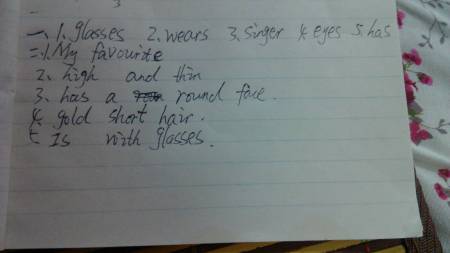 3
一、1. glasses 2. wears 3. singer 4. eyes 5. has
二、1. My favourite
2. high and thin
3. has a round face.
4. gold short hair.
5. Is with glasses.